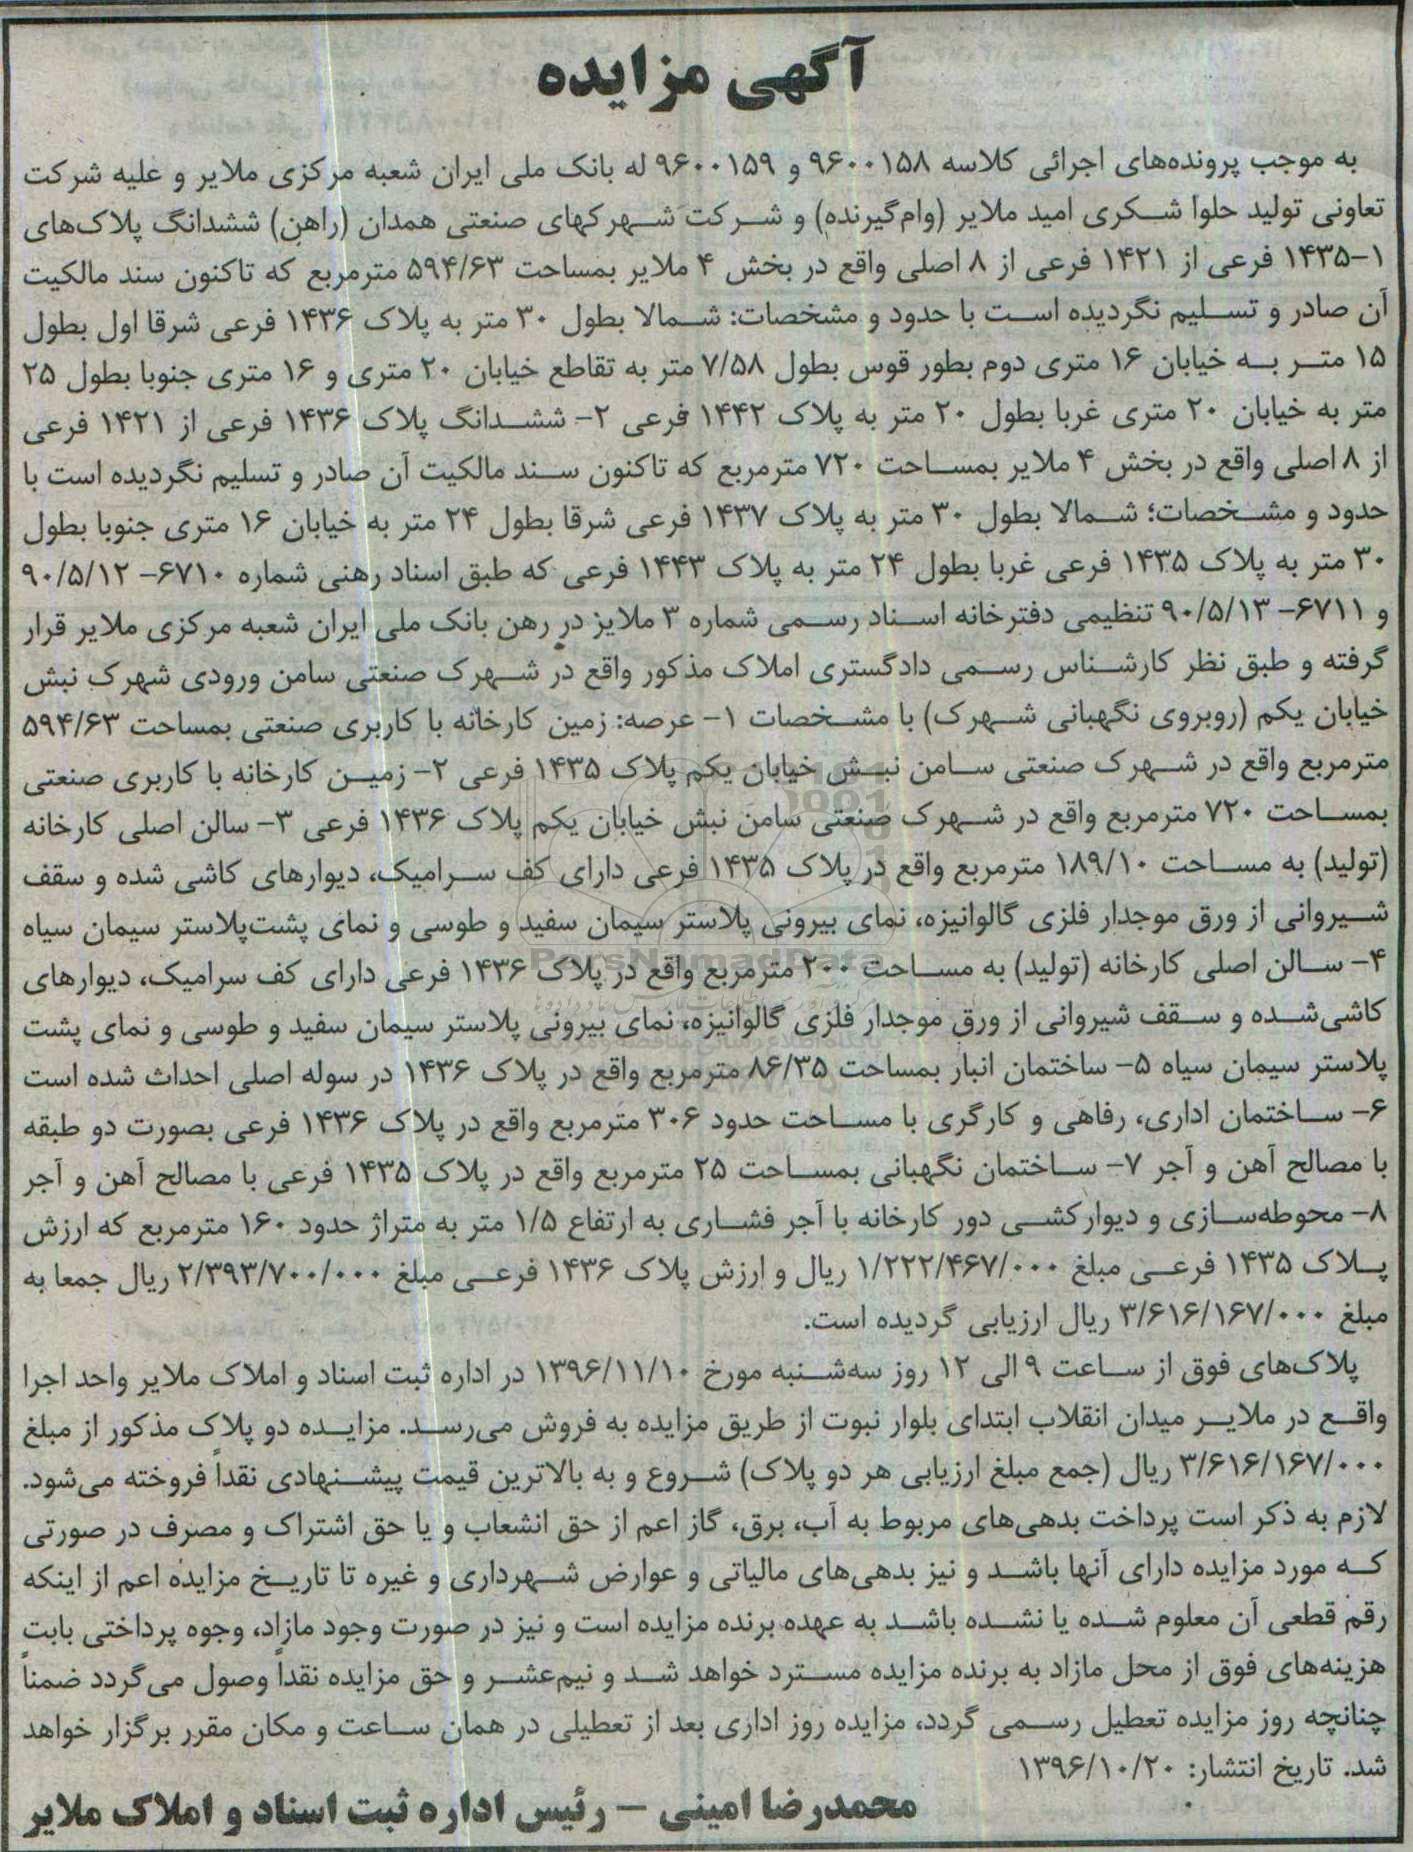 آگهی مزایده
به موجب پرونده‌های اجرائی کلاسه ۹۶۰۰۱۵۸ و ۹۶۰۰۱۵۹ له بانک ملی ایران شعبه مرکزی ملایر و علیه شرکت
تعاونی تولید حلوا شکری امید ملایر (وام‌گیرنده) و شرکت شهرکهای صنعتی همدان (راهن) ششدانگ پلاک‌های
۱-۱۴۳۵ فرعی از ۱۴۲۱ فرعی از ۸ اصلی واقع در بخش ۴ ملایر بمساحت ۵۹۴/۶۳ مترمربع که تاکنون سند مالکیت
آن صادر و تسلیم نگردیده است با حدود و مشخصات: شمالا بطول ۳۰ متر به پلاک ۱۴۳۶ فرعی شرقا اول بطول
۱۵ متر به خیابان ۱۶ متری دوم بطور قوس بطول ۷/۵۸ متر به تقاطع خیابان ۲۰ متری و ۱۶ متری جنوبا بطول ۲۵
متر به خیابان ۲۰ متری غربا بطول ۲۰ متر به پلاک ۱۴۴۲ فرعی ۲- ششدانگ پلاک ۱۴۳۶ فرعی از ۱۴۲۱ فرعی
از ۸ اصلی واقع در بخش ۴ ملایر بمساحت ۷۲۰ مترمربع که تاکنون سند مالکیت آن صادر و تسلیم نگردیده است با
حدود و مشخصات؛ شمالا بطول ۳۰ متر به پلاک ۱۴۳۷ فرعی شرقا بطول ۲۴ متر به خیابان ۱۶ متری جنوبا بطول
۳۰ متر به پلاک ۱۴۳۵ فرعی غربا بطول ۲۴ متر به پلاک ۱۴۴۳ فرعی که طبق اسناد رهنی شماره ۶۷۱۰- ۹۰/۵/۱۲
و ۶۷۱۱- ۹۰/۵/۱۳ تنظیمی دفترخانه اسناد رسمی شماره ۳ ملایز در رهن بانک ملی ایران شعبه مرکزی ملایر قرار
گرفته و طبق نظر کارشناس رسمی دادگستری املاک مذکور واقع در شهرک صنعتی سامن ورودی شهرک نبش
خیابان یکم (روبروی نگهبانی شهرک) با مشخصات ۱- عرصه: زمین کارخانه با کاربری صنعتی بمساحت ۵۹۴/۶۳
مترمربع واقع در شهرک صنعتی سامن نبش خیابان یکم پلاک ۱۴۳۵ فرعی ۲- زمین کارخانه با کاربری صنعتی
بمساحت ۷۲۰ مترمربع واقع در شهرک صنعتی سامن نبش خیابان یکم پلاک ۱۴۳۶ فرعی ۳- سالن اصلی کارخانه
(تولید) به مساحت ۱۸۹/۱۰ مترمربع واقع در پلاک ۱۴۳۵ فرعی دارای کف سرامیک، دیوارهای کاشی شده و سقف
شیروانی از ورق موجدار فلزی گالوانیزه، نمای بیرونی پلاستر سیمان سفید و طوسی و نمای پشت‌پلاستر سیمان سیاه
۴- سالن اصلی کارخانه (تولید) به مساحت ۲۰۰ مترمربع واقع در پلاک ۱۴۳۶ فرعی دارای کف سرامیک، دیوارهای
کاشی‌شده و سقف شیروانی از ورق موجدار فلزی گالوانیزه، نمای بیرونی پلاستر سیمان سفید و طوسی و نمای پشت
پلاستر سیمان سیاه ۵- ساختمان انبار بمساحت ۸۶/۳۵ مترمربع واقع در پلاک ۱۴۳۶ در سوله اصلی احداث شده است
۶- ساختمان اداری، رفاهی و کارگری با مساحت حدود ۳۰۶ مترمربع واقع در پلاک ۱۴۳۶ فرعی بصورت دو طبقه
با مصالح آهن و آجر ۷- ساختمان نگهبانی بمساحت ۲۵ مترمربع واقع در پلاک ۱۴۳۵ فرعی با مصالح آهن و آجر
۸- محوطه‌سازی و دیوارکشی دور کارخانه با آجر فشاری به ارتفاع ۱/۵ متر به متراژ حدود ۱۶۰ مترمربع که ارزش
پلاک ۱۴۳۵ فرعی مبلغ ۱/۲۲۲/۴۶۷/۰۰۰ ریال و ارزش پلاک ۱۴۳۶ فرعی مبلغ ۲/۳۹۳/۷۰۰/۰۰۰ ریال جمعا به
مبلغ ۳/۶۱۶/۱۶۷/۰۰۰ ریال ارزیابی گردیده است.
پلاک‌های فوق از ساعت ۹ الی ۱۲ روز سه‌شنبه مورخ ۱۳۹۶/۱۱/۱۰ در اداره ثبت اسناد و املاک ملایر واحد اجرا
واقع در ملایر میدان انقلاب ابتدای بلوار نبوت از طریق مزایده به فروش می‌رسد. مزایده دو پلاک مذکور از مبلغ
۳/۶۱۶/۱۶۷/۰۰۰ ریال (جمع مبلغ ارزیابی هر دو پلاک) شروع و به بالاترین قیمت پیشنهادی نقداً فروخته می‌شود.
لازم به ذکر است پرداخت بدهی‌های مربوط به آب، برق، گاز اعم از حق انشعاب و یا حق اشتراک و مصرف در صورتی
که مورد مزایده دارای آنها باشد و نیز بدهی‌های مالیاتی و عوارض شهرداری و غیره تا تاریخ مزایده اعم از اینکه
رقم قطعی آن معلوم شده یا نشده باشد به عهده برنده مزایده است و نیز در صورت وجود مازاد، وجوه پرداختی بابت
هزینه‌های فوق از محل مازاد به برنده مزایده مسترد خواهد شد و نیم‌عشر و حق مزایده نقداً وصول می‌گردد ضمناً
چنانچه روز مزایده تعطیل رسمی گردد، مزایده روز اداری بعد از تعطیلی در همان ساعت و مکان مقرر برگزار خواهد
شد. تاریخ انتشار: ۱۳۹۶/۱۰/۲۰
محمدرضا امینی – رئیس اداره ثبت اسناد و املاک ملایر
ParsNamadData